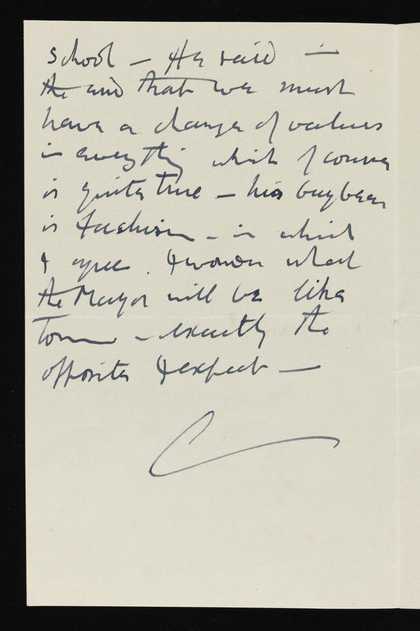 school – He said in
the end that we must
have a change of values
in everything which of course
is quite true – his bugbear
is fashion – in which
I agree. I wonder what
the Mayor will be like
Tom – exactly the
opposite I expect –
C